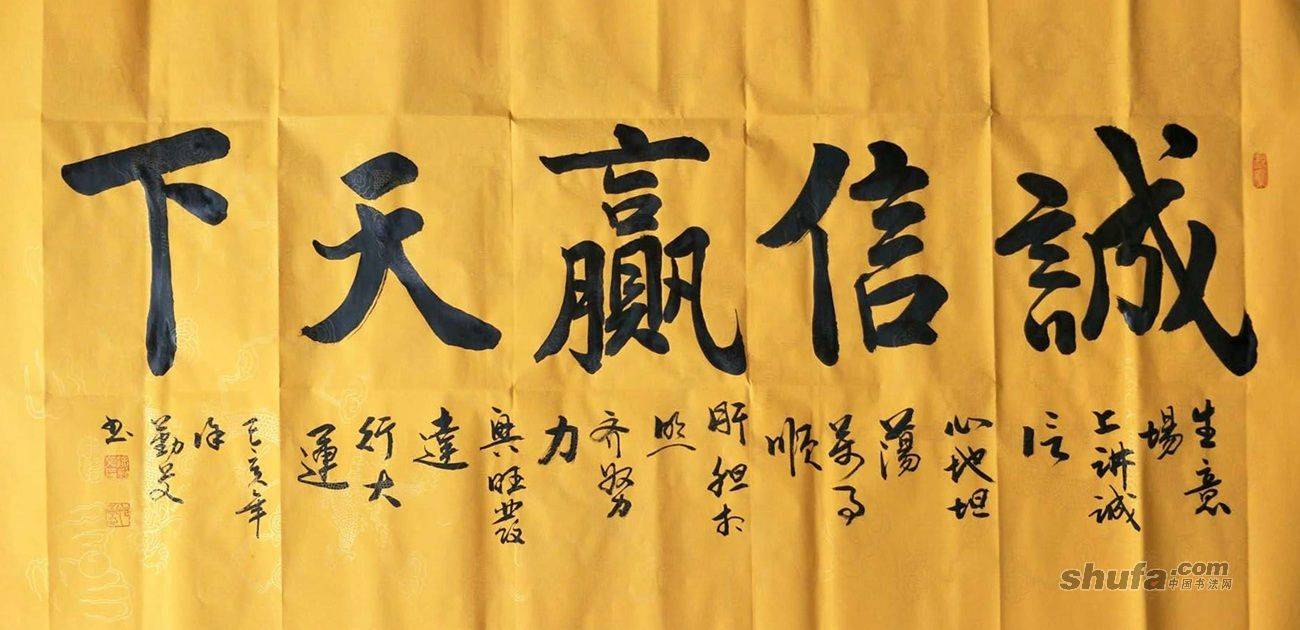 誠信贏天下
生意
場
上讲誠
信
心地坦
蕩
萬事
順
肝胆相
照
齐努
力
興旺發
達
行大
運
己亥年
徐
勤
书
shufa.com
中国书法网